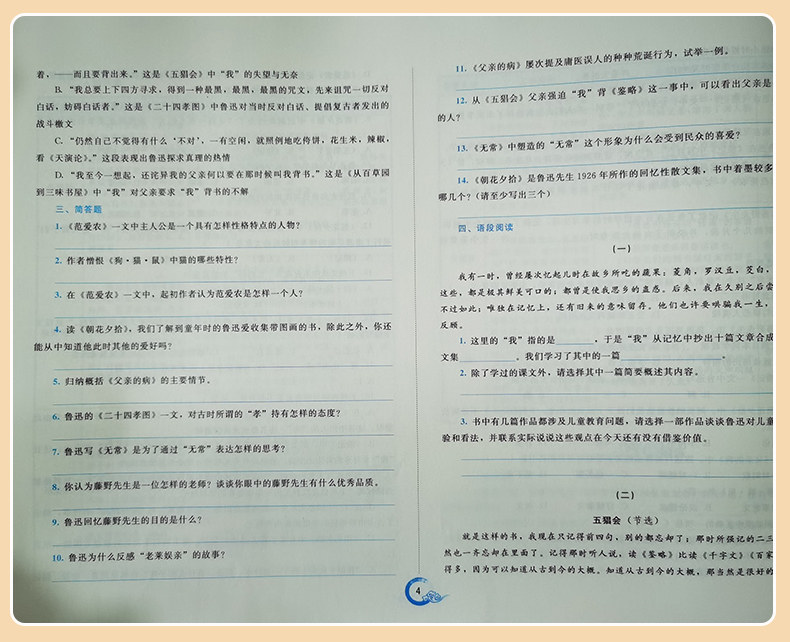 着，——而且要背出来。”这是《五猖会》中“我”的失望与无奈
B. “我总要上下四方寻求，得到一种最黑，最黑，最黑的咒文，先来诅咒一切反对
白话，妨碍白话者。”这是《二十四孝图》中鲁迅对当时反对白话、提倡复古者发出的
战斗檄文
C. “仍然自己不觉得有什么‘不对’，一有空闲，就照例地吃侉饼，花生米，辣椒，
看《天演论》。”这段表现出鲁迅探求真理的热情
D. “我至今一想起，还诧异我的父亲何以要在那时候叫我背书。”这是《从百草园
到三味书屋》中“我”对父亲要求“我”背书的不解
三、简答题
1. 《范爱农》一文中主人公是一个具有怎样性格特点的人物？
2. 作者憎恨《狗·猫·鼠》中猫的哪些特性？
3. 在《范爱农》一文中，起初作者认为范爱农是怎样一个人？
4. 读《朝花夕拾》，我们了解到童年时的鲁迅爱收集带图画的书，除此之外，你还
能从中知道他此时其他的爱好吗？
5. 归纳概括《父亲的病》的主要情节。
6. 鲁迅的《二十四孝图》一文，对古时所谓的“孝”持有怎样的态度？
7. 鲁迅写《无常》是为了通过“无常”表达怎样的思考？
8. 你认为藤野先生是一位怎样的老师？谈谈你眼中的藤野先生有什么优秀品质。
9. 鲁迅回忆藤野先生的目的是什么？
10. 鲁迅为什么反感“老莱娱亲”的故事？
11. 《父亲的病》屡次提及庸医误人的种种荒诞行为，试举一例。
12. 从《五猖会》父亲强迫“我”背《鉴略》这一事中，可以看出父亲是
的人？
13. 《无常》中塑造的“无常”这个形象为什么会受到民众的喜爱？
14. 《朝花夕拾》是鲁迅先生 1926 年所作的回忆性散文集，书中着墨较多
哪几个？(请至少写出三个)
四、语段阅读
(一)
我有一时，曾经屡次忆起儿时在故乡所吃的蔬果：菱角，罗汉豆，茭白，
这些，都是极其鲜美可口的；都曾是使我思乡的蛊惑。后来，我在久别之后尝
不过如此；唯独在记忆上，还有旧来的意味留存。他们也许要哄骗我一生，
反顾。
1. 这里的“我”指的是________，于是“我”从记忆中抄出十篇文章合成
文集__________。我们学习了其中的一篇____________。
2. 除了学过的课文外，请选择其中一篇简要概述其内容。
3. 书中有几篇作品都涉及儿童教育问题，请选择一部作品谈谈鲁迅对儿童
验和看法，并联系实际说说这些观点在今天还有没有借鉴价值。
(二)
五猖会（节选）
就是这样的书，我现在只记得前四句，别的都忘却了；那时所强记的二三
然也一齐忘却在里面了。记得那时听人说，读《鉴略》比读《千字文》《百家
得多，因为可以知道从古到今的大概。知道从古到今的大概，那当然是很好的
4